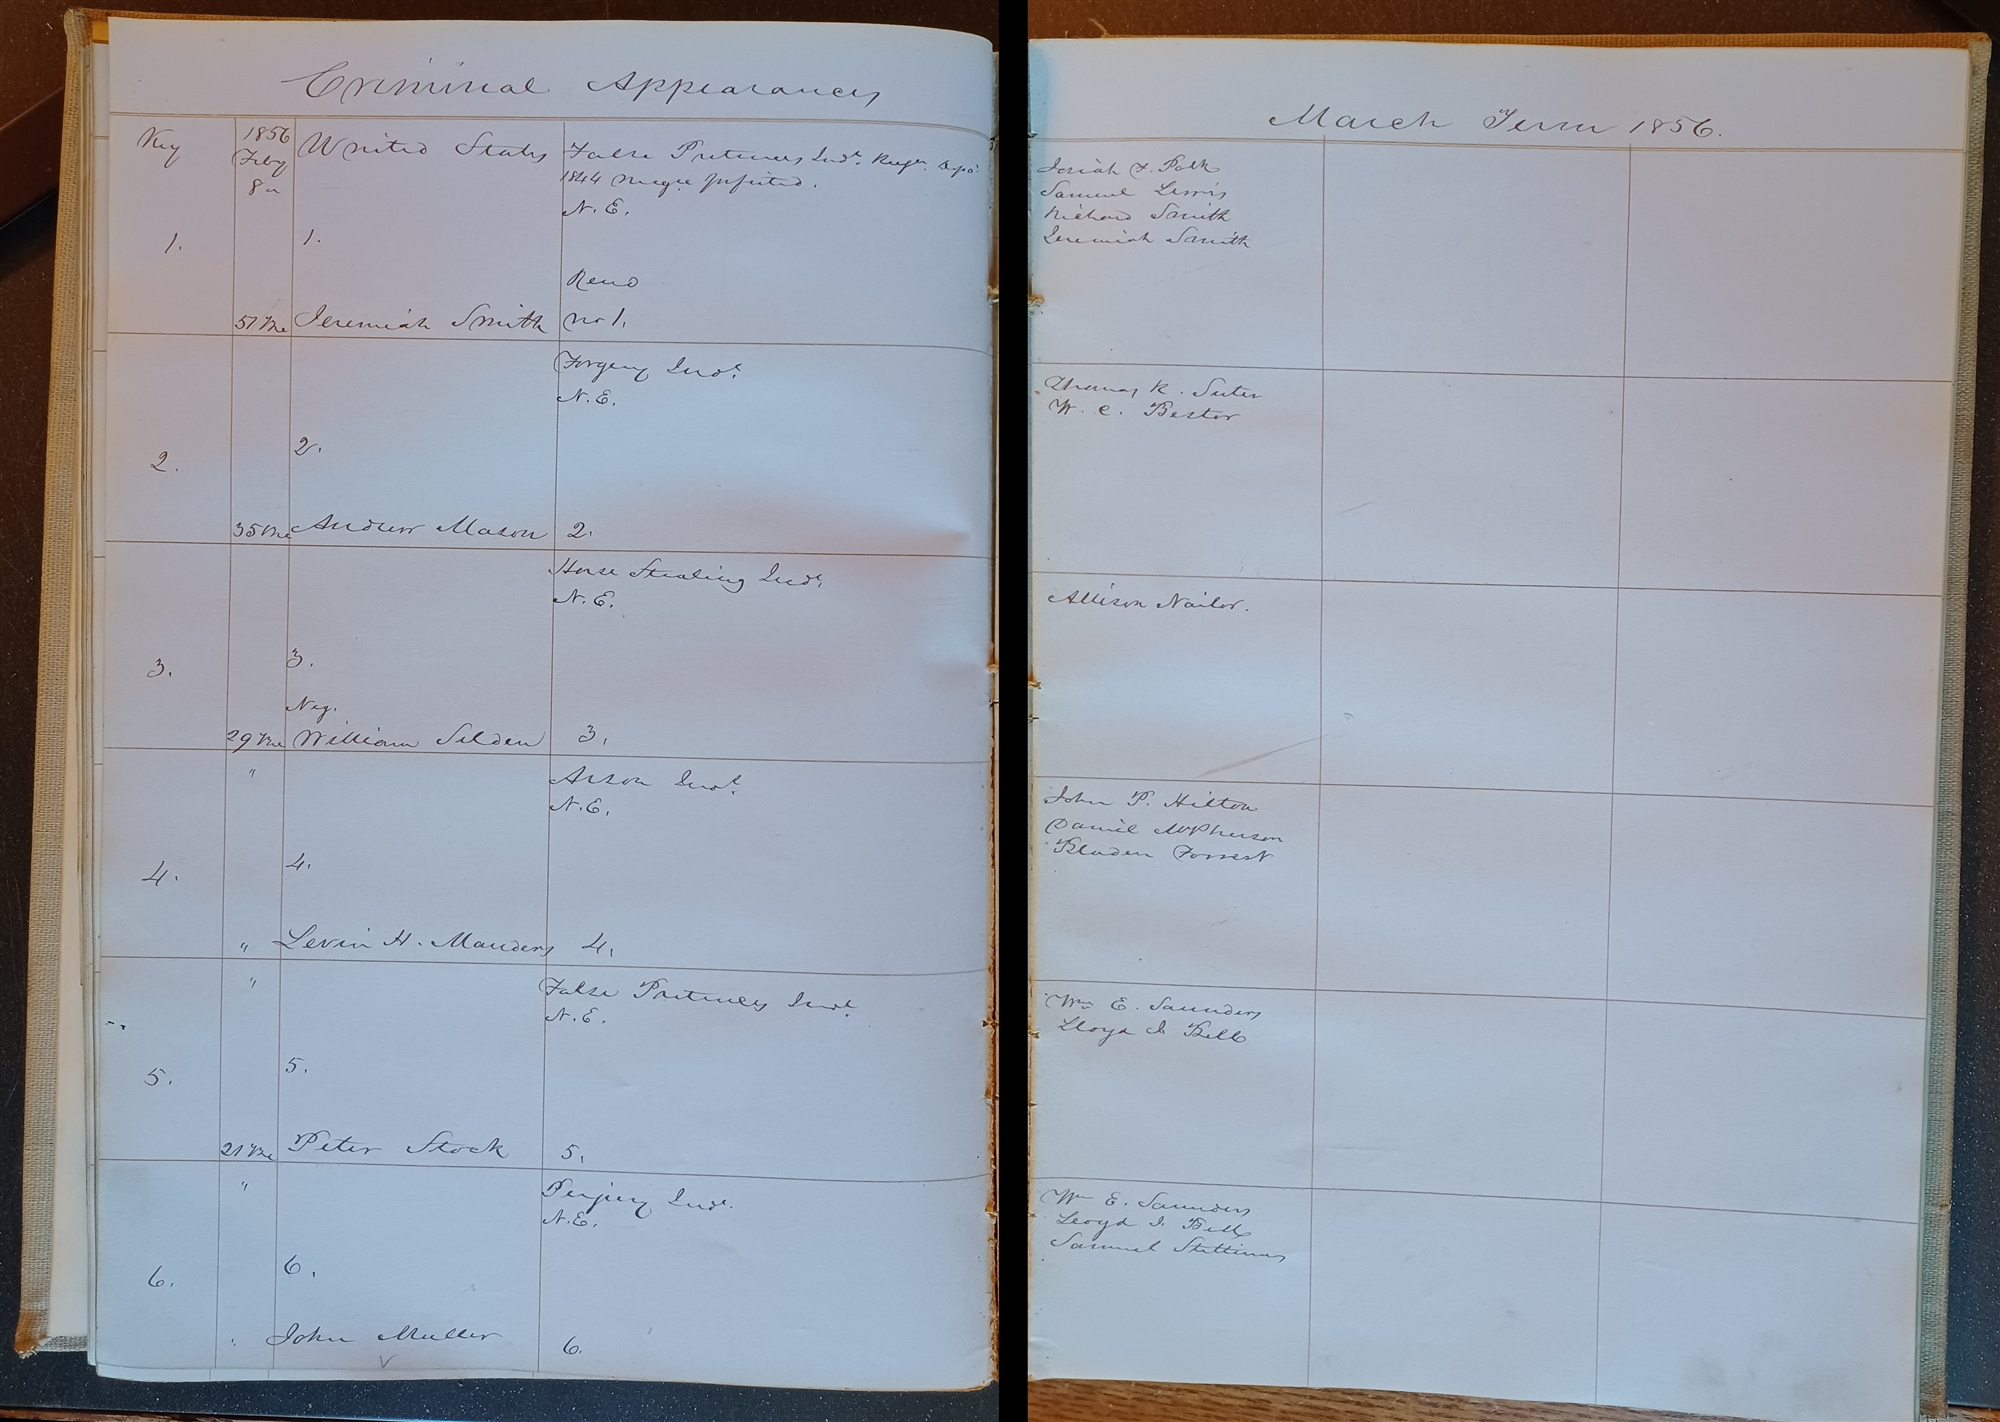 Criminal Appearances
Key
1856
Feby
8
United States
False Pretences Indt. Recogn. Depo.
1844
N. E.
1.
1.
Recd
51 Tne
Jeremiah Smith
No 1.
Forgery Indt.
N. E.
2.
2.
35 Tne
Andrew Mason
2.
Horse Stealing Indt.
N. E.
3.
3.
Neg.
29 Tne
William Selden
3.
"
Arson Indt.
N. E.
4.
4.
"
Levin H. Manders
4.
"
False Pretences Indt.
N. E.
5.
5.
21 Tne
Peter Stock
5.
"
Perjury Indt.
N. E.
6.
6.
"
John Muller
6.
March Term 1856.
Josiah F. Polk
Samuel Lewis
Richard Smith
Jeremiah Smith
Thomas R. Suter
W. C. Bestor
Allison Nailor.
John P. Hilton
Daniel McPherson
Bladen Forrest
Wm E. Saunders
Lloyd I. Bell
Wm E. Saunders
Lloyd I. Bell
Samuel Stettinus